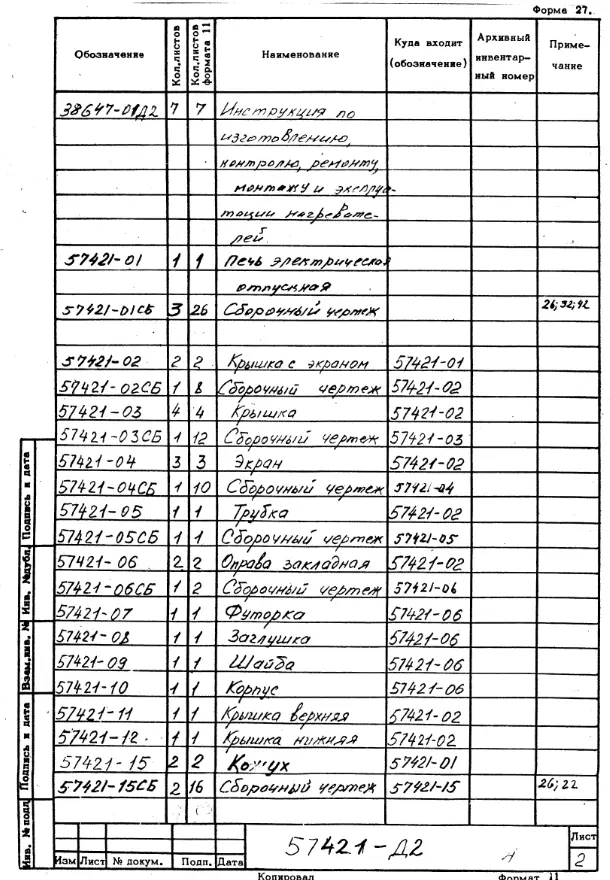 Форма 27.
Обозначение Кол.листов Кол.листов формата 11 Наименование Куда входит (обозначение) Архивный инвентар-ный номер Приме-чание
38647-01Д2 7 7 Инструкция по
изготовлению,
контролю, ремонту,
монтажу и эксплуа-
тации нагревате-
лей.
57421-01 1 1 Печь электрическая
отпускная
57421-01СБ 3 26 Сборочный чертеж 26;32;42
57421-02 2 2 Крышка с экраном 57421-01
57421-02СБ 1 8 Сборочный чертеж 57421-02
57421-03 4 4 Крышка 57421-02
57421-03СБ 1 12 Сборочный чертеж 57421-03
57421-04 3 3 Экран 57421-02
57421-04СБ 1 10 Сборочный чертеж 57421-04
57421-05 1 1 Трубка 57421-02
57421-05СБ 1 1 Сборочный чертеж 57421-05
57421-06 2 2 Оправа закладная 57421-02
57421-06СБ 1 2 Сборочный чертеж 57421-06
57421-07 1 1 Футорка 57421-06
57421-08 1 1 Заглушка 57421-06
57421-09 1 1 Шайба 57421-06
57421-10 1 1 Корпус 57421-06
57421-11 1 1 Крышка верхняя 57421-02
57421-12 1 1 Крышка нижняя 57421-02
57421-15 2 2 Кожух 57421-01
57421-15СБ 2 16 Сборочный чертеж 57421-15 26;22
Инв. № подл. Подпись и дата Взам.инв. № Инв. №дубл. Подпись и дата
57421-Д2
Лист
2
Изм Лист № докум. Подп. Дата
Копировал Формат 11